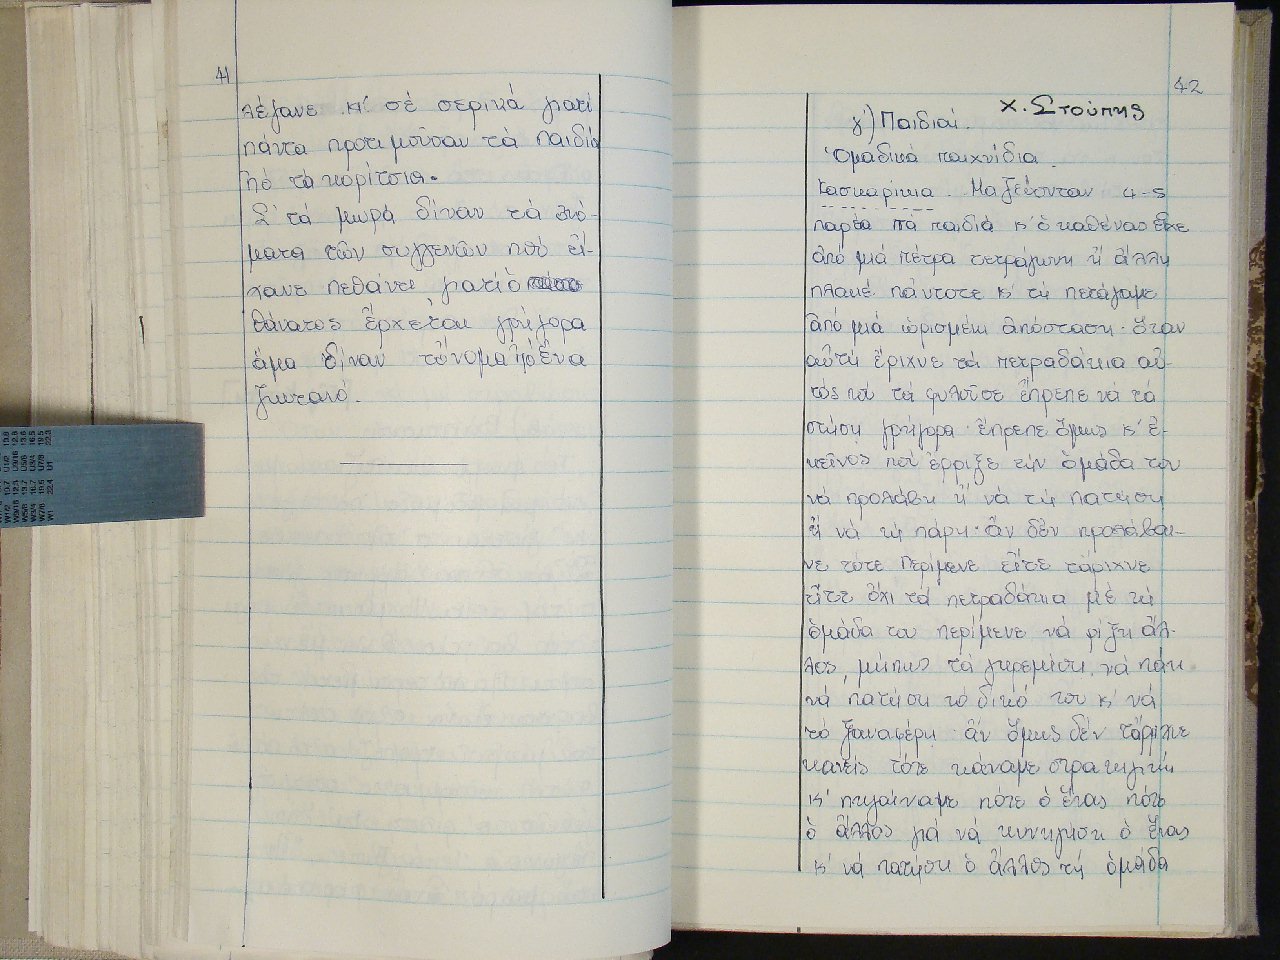 41
λέγανε κ' σέ σερικά γιατί
πάντα προτιμοῦσαν τά παιδιά
πό τά κορίτσια.
Σ' τά μωρά δίναν τά ὀνό-
ματα τῶν συγγενῶν πού εἴ-
χανε πεθάνει γιατί ὁ
θάνατος ἔρχεται γρήγορα
ἅμα δίναν τὄνομα πό ἕνα
ζωντανό.
42
Χ. Στούπης
γ) Παιδιαί.
Ὁμαδικά παιχνίδια.
Κασκαρίκια. Μαζεύονταν 4-5
παρέα τά παιδιά κ' ὁ καθένας εἶχε
ἀπό μιά πέτρα τετράγωνη ἤ ἄλλη
πλακέ πάντοτε κ' τή πετάγαμε
ἀπό μιά ὡρισμένη ἀπόσταση. ὅταν
αὐτή ἔριχνε τά πετραδάκια αὐ-
τός πού τά φυλοῦσε ἔπρεπε νά τά
στήση γρήγορα. ἔπρεπε ὅμως κ' ἐ-
κεῖνος πού ἔρριξε τήν ὁμάδα του
νά προλάβη ἤ νά τή πατήση
ἤ νά τή πάρη. ἄν δέν προλάβαι-
νε τότε περίμενε εἴτε τἄριχνε
εἴτε ὄχι τά πετραδάκια μέ τή
ὁμάδα του περίμενε νά ρίξη ἄλ-
λος, μήπως τά γκρεμίση, νά πάη
νά πατήση τό δικό του κ' νά
τό ξαναφέρη. ἄν ὅμως δέν τἄριχνε
κανείς τότε κάναμε στρατηγική
κ' πηγαίναμε πότε ὁ ἕνας πότε
ὁ ἄλλος γιά νά κυνηγήση ὁ ἕνας
κ' νά πατήση ὁ ἄλλος τή ὁμάδα